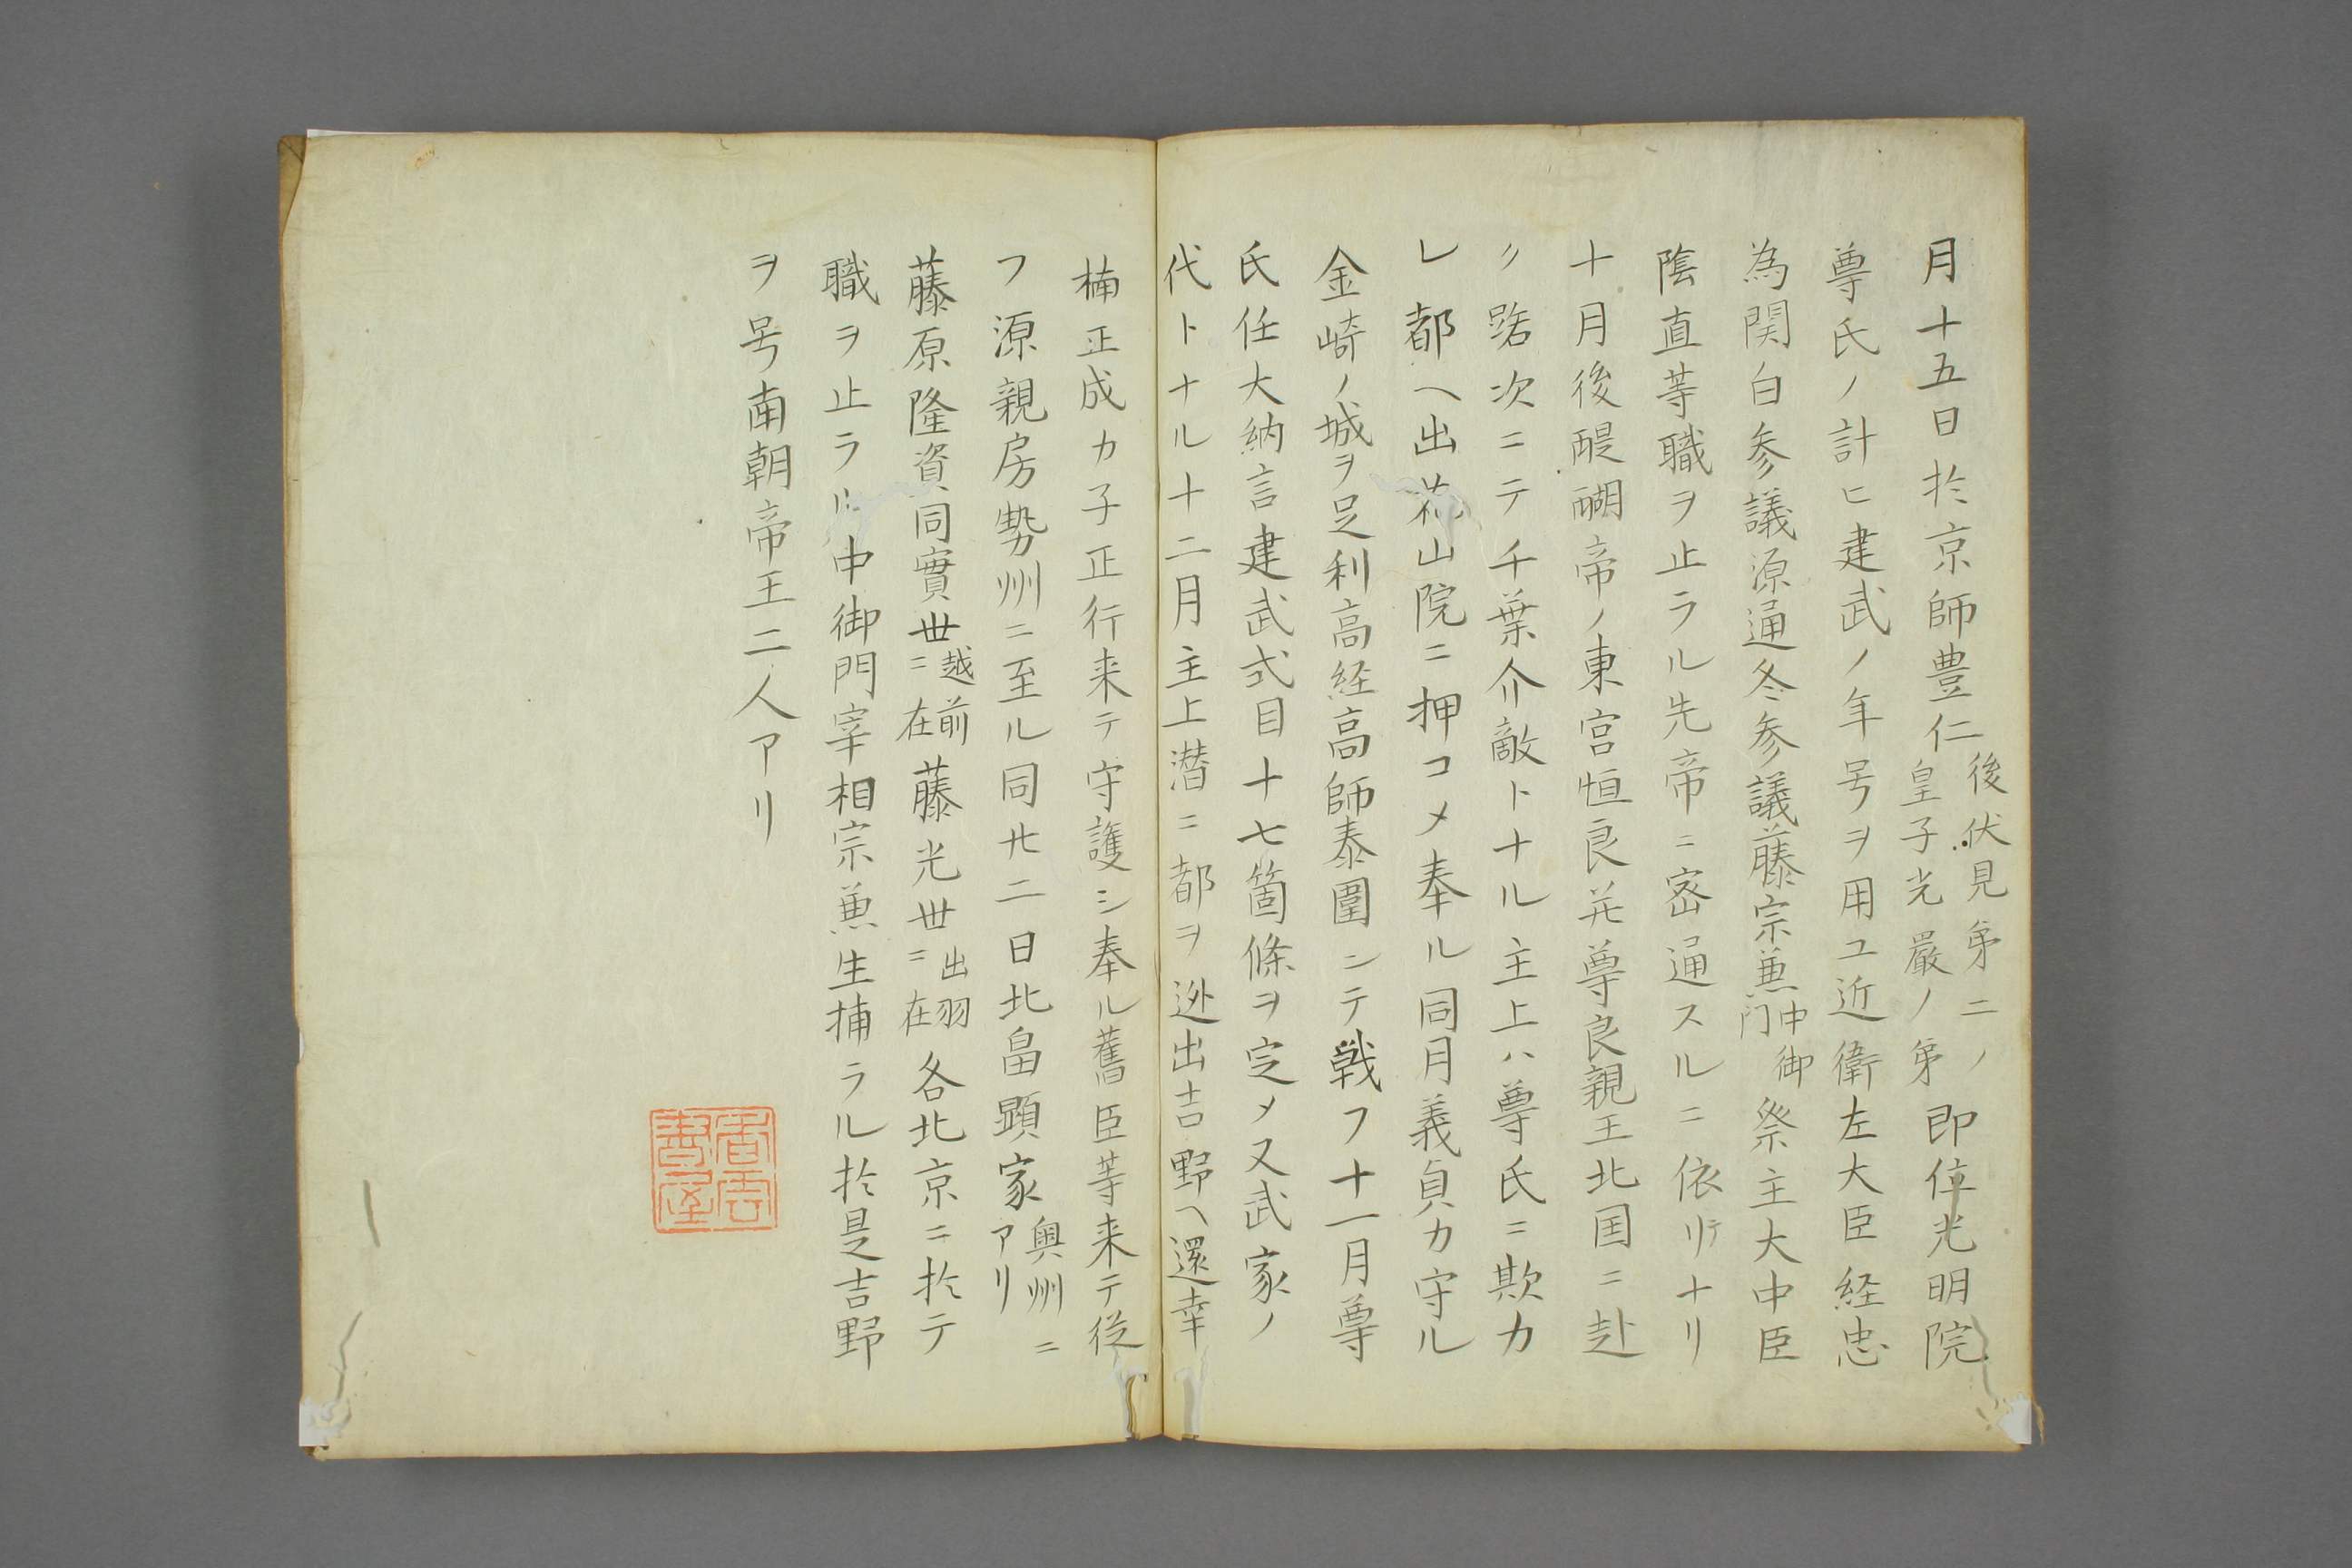 月十五日於京師豊仁後伏見第二ノ皇子光嚴ノ弟即位光明院
尊氏ノ計ヒ建武ノ年号ヲ用ユ近衛左大臣経忠
為関白参議源通冬参議藤宗兼中御門祭主大中臣
隂直等職ヲ止ラル先帝ニ密通スルニ依リテナリ
十月後醍醐帝ノ東宮恒良并尊良親王北国ニ赴
ク路次ニテ千葉介敵トナル主上ハ尊氏ニ欺カ
レ都ヘ出花山院ニ押コメ奉ル同月義貞カ守ル
金崎ノ城ヲ足利高経高師泰圍ンテ戦フ十一月尊
氏任大納言建武式目十七箇條ヲ定メ又武家ノ
代トナル十二月主上潜ニ都ヲ迯出吉野ヘ還幸
楠正成カ子正行来テ守護シ奉ル舊臣等来テ従
フ源親房勢州ニ至ル同廿二日北畠顕家奥州ニアリ
藤原隆資同實世越前ニ在藤光世出羽ニ在各北京ニ於テ
職ヲ止ラル中御門宰相宗兼生捕ラル於是吉野
ヲ号南朝帝王二人アリ